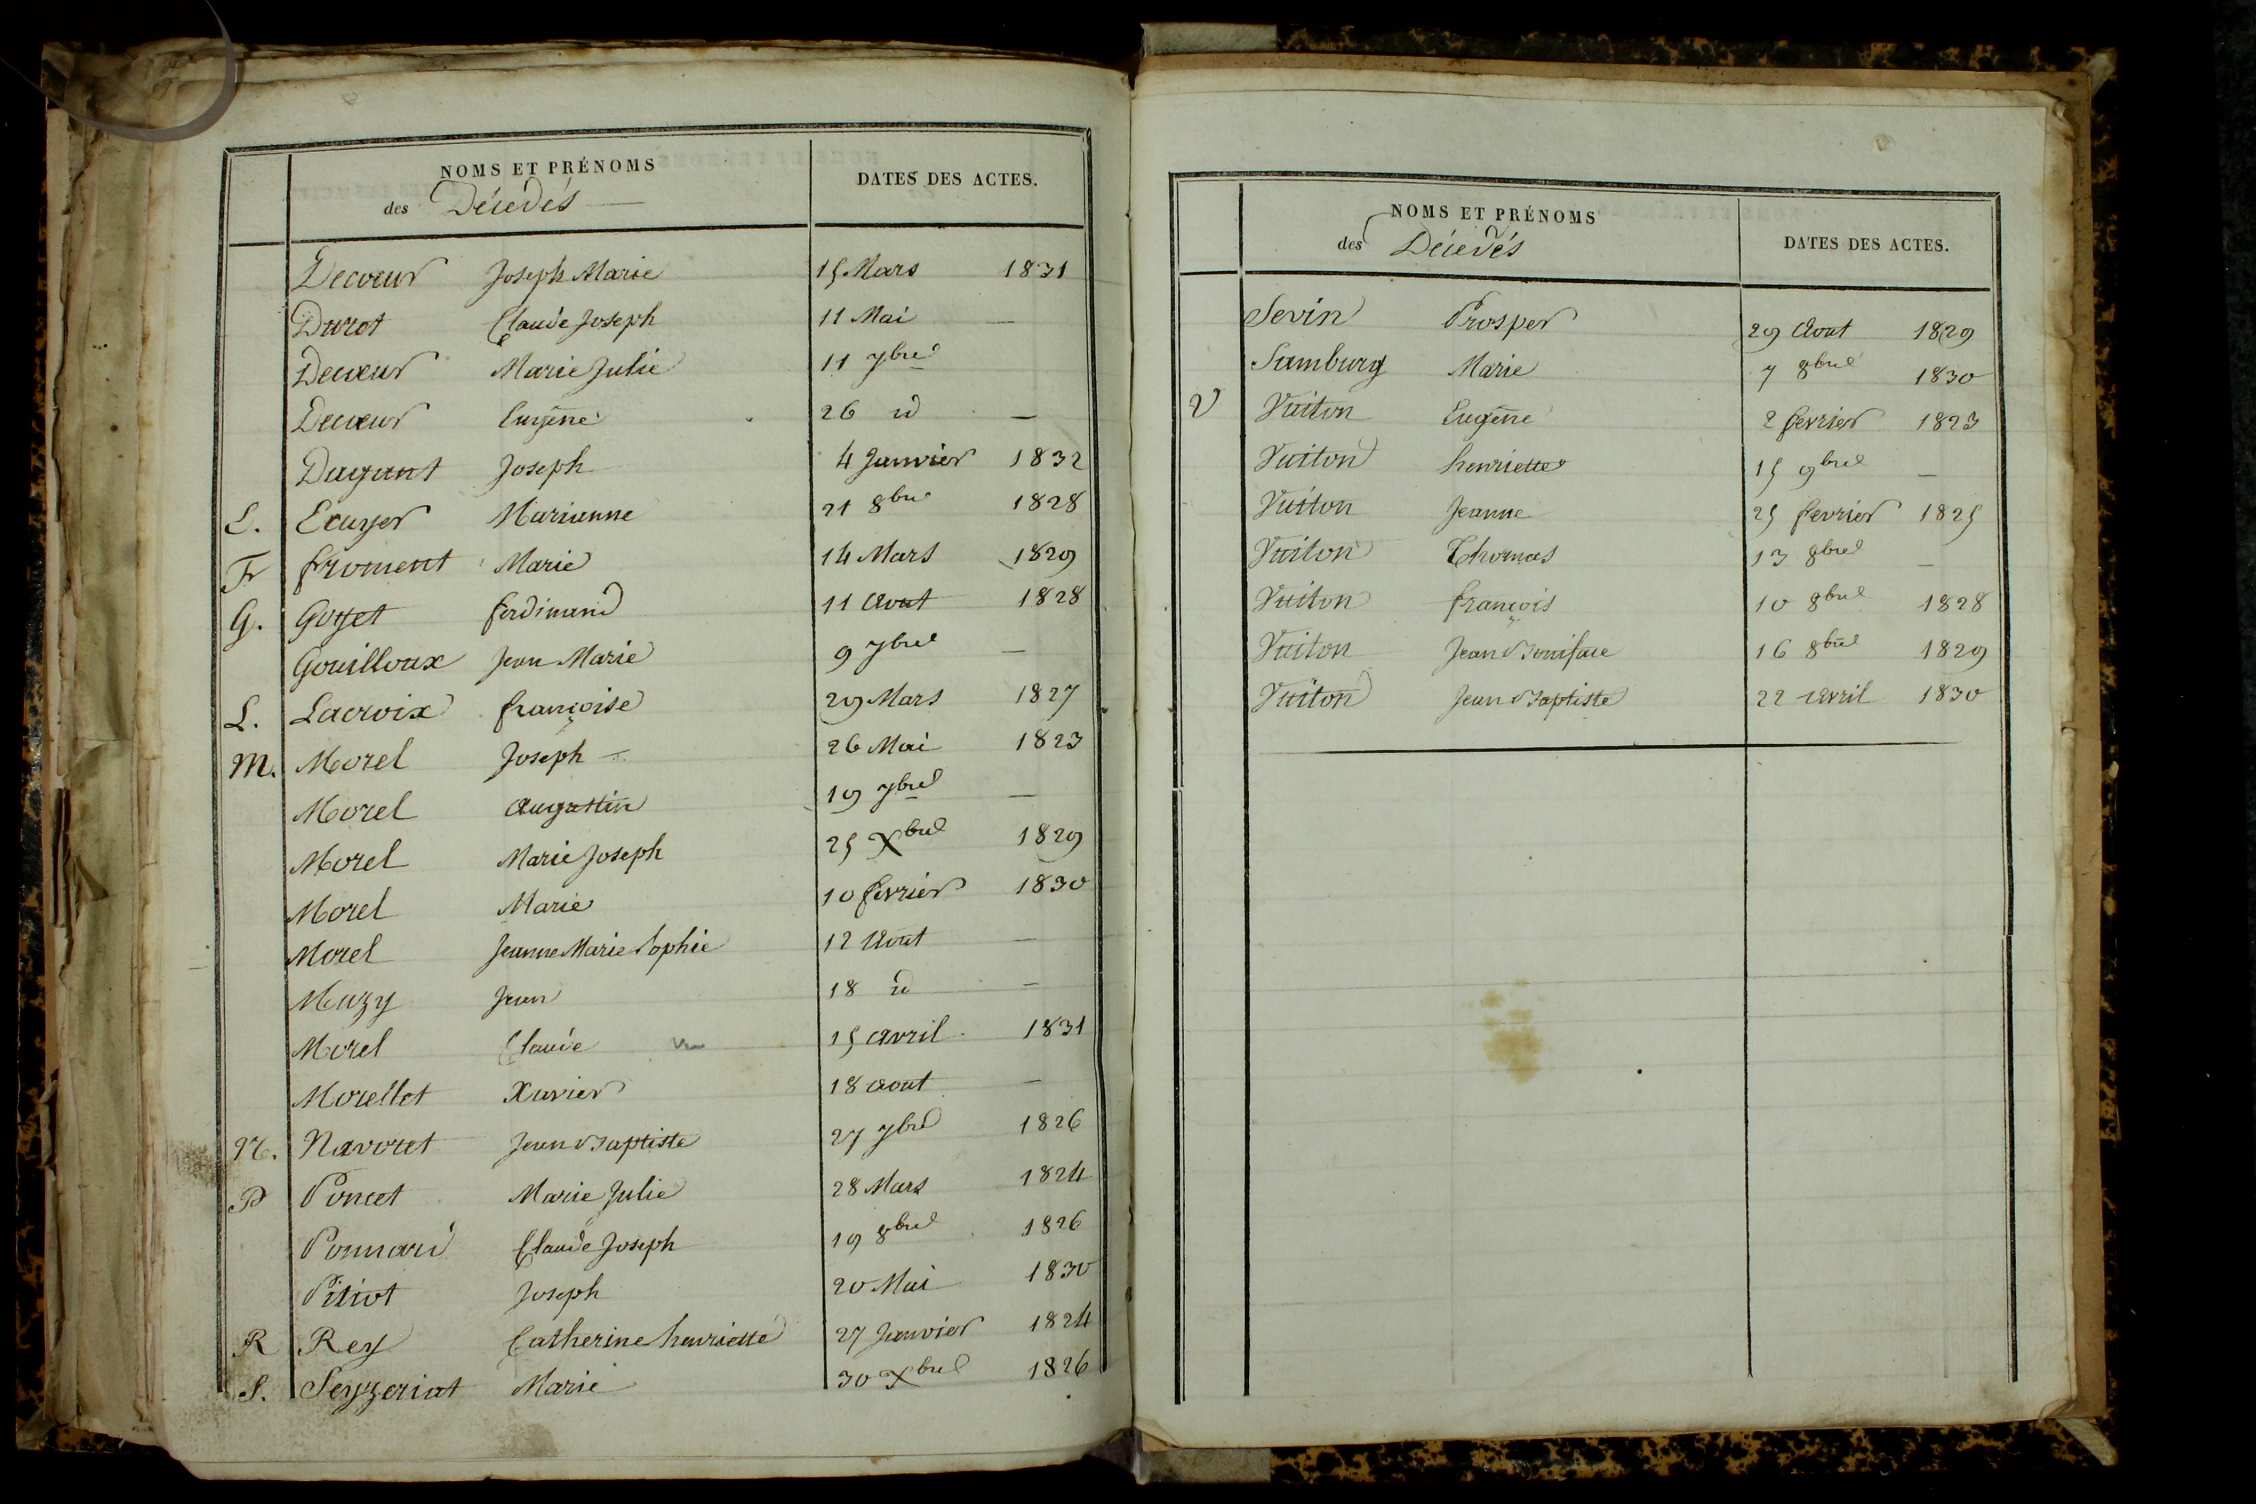 NOMS ET PRÉNOMS
des Décédés
DATES DES ACTES.
Decoeur Joseph Marie 15 Mars 1831
Durot Claude Joseph 11 Mai —
Decoeur Marie Julie 11 7bre
Decoeur Eugène 26 id —
Dagant Joseph 4 Janvier 1832
E. Ecuyer Marianne 21 8bre 1828
Fr froment Marie 14 Mars 1829
G. Goyet ferdinand 11 Aout 1828
Gouilloux Jean Marie 9 7bre —
L. Lacroix françoise 29 Mars 1827
M. Morel Joseph 26 Mai 1823
Morel Augustin 19 7bre —
Morel Marie Joseph 25 Xbre 1829
Morel Marie 10 fevrier 1830
Morel Jeanne Marie Sophie 12 Aout —
Muzy Jean 18 id —
Morel Claude 15 Avril 1831
Morellet Xavier 18 Aout —
N. Navoret Jean Baptiste 27 7bre 1826
P Poncet Marie Julie 28 Mars 1824
Ponnard Claude Joseph 19 8bre 1826
Pitiot Joseph 20 Mai 1830
R Rey Catherine henriette 27 Janvier 1824
S. Seyzeriat Marie 30 Xbre 1826
NOMS ET PRÉNOMS
des Décédés
DATES DES ACTES.
Sevin Prosper 29 Aout 1829
Samburg Marie 7 8bre 1830
V Vuiton Eugène 2 fevrier 1823
Vuiton henriette 15 9bre —
Vuiton Jeanne 25 fevrier 1825
Vuiton Thomas 13 8bre —
Vuiton françois 10 8bre 1828
Vuiton Jean Boniface 16 8bre 1829
Vuiton Jean Baptiste 22 Avril 1830